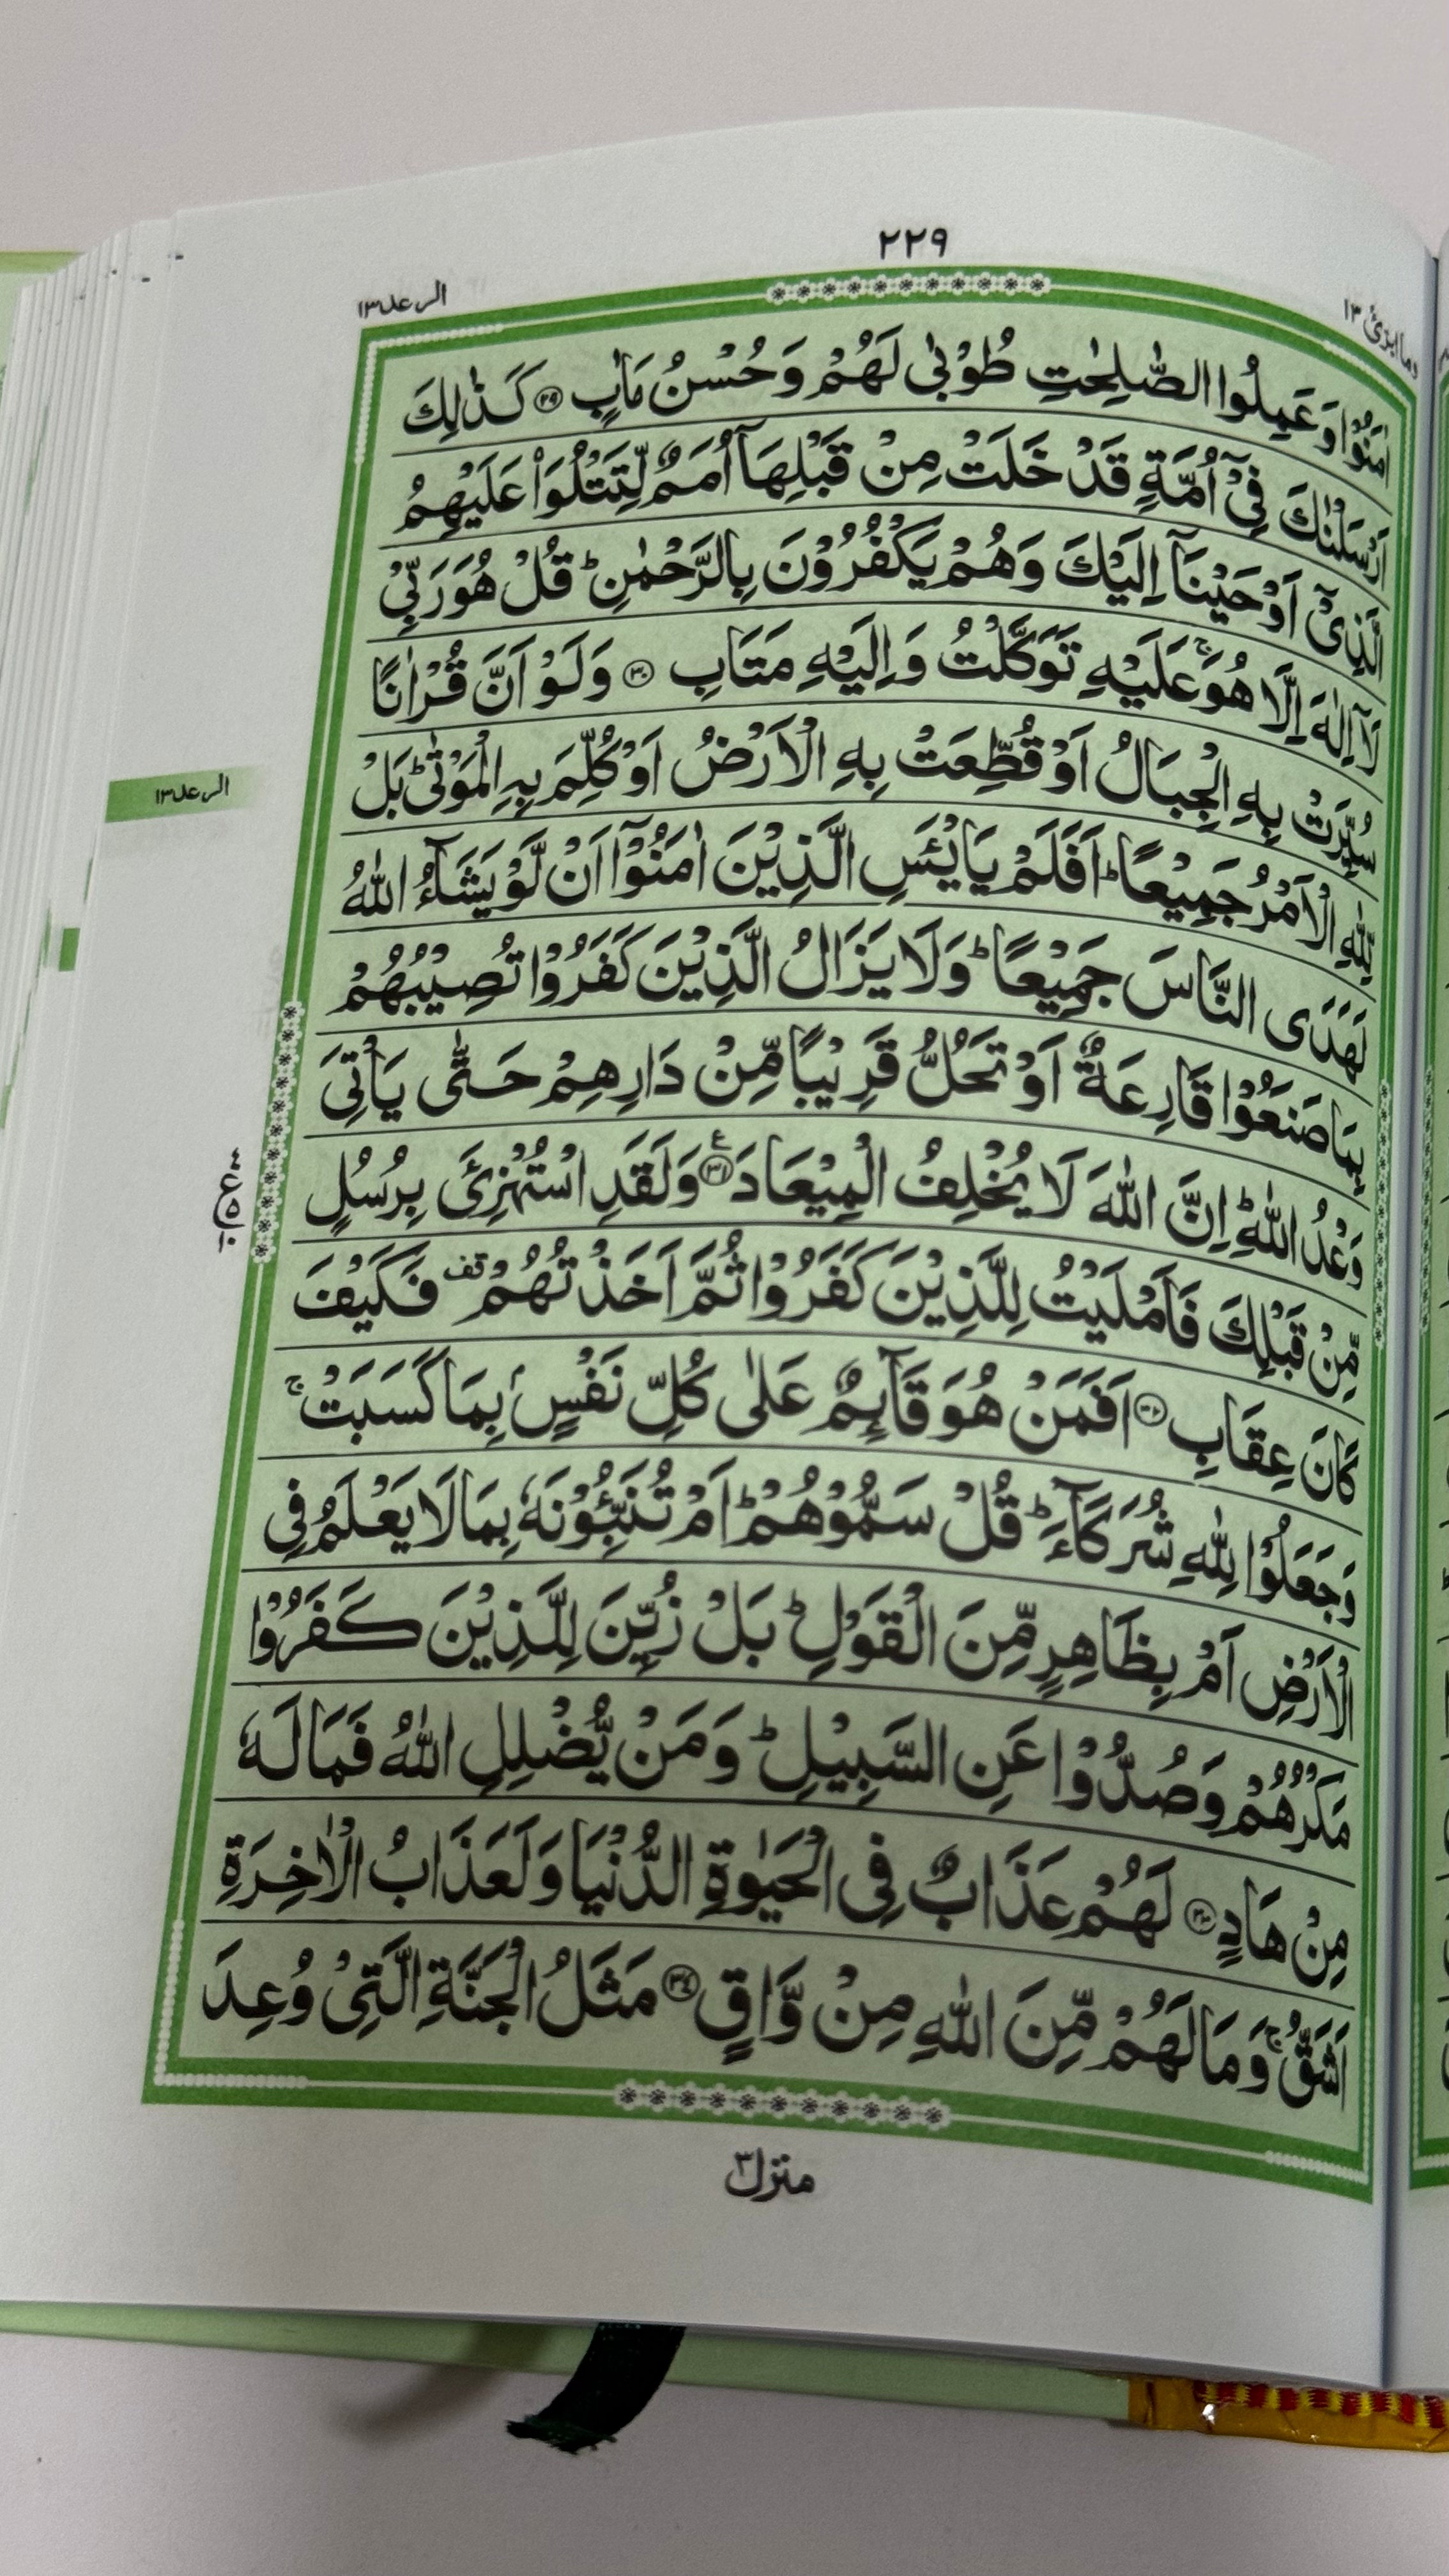 ٢٢٩
وما ابرئ ١٣
الرعد ١٣
اٰمَنُوْا وَعَمِلُوا الصّٰلِحٰتِ طُوْبٰى لَهُمْ وَحُسْنُ مَاٰبٍ ۝٢٩ كَذٰلِكَ
اَرْسَلْنٰكَ فِيْۤ اُمَّةٍ قَدْ خَلَتْ مِنْ قَبْلِهَاۤ اُمَمٌ لِّتَتْلُوَا۟ عَلَيْهِمُ
الَّذِيْۤ اَوْحَيْنَاۤ اِلَيْكَ وَهُمْ يَكْفُرُوْنَ بِالرَّحْمٰنِ ؕ قُلْ هُوَ رَبِّيْ
لَاۤ اِلٰهَ اِلَّا هُوَ ۚ عَلَيْهِ تَوَكَّلْتُ وَاِلَيْهِ مَتَابِ ۝٣٠ وَلَوْ اَنَّ قُرْاٰنًا
سُيِّرَتْ بِهِ الْجِبَالُ اَوْ قُطِّعَتْ بِهِ الْاَرْضُ اَوْ كُلِّمَ بِهِ الْمَوْتٰى ؕ بَلْ
لِّلّٰهِ الْاَمْرُ جَمِيْعًا ؕ اَفَلَمْ يَايْـَٔسِ الَّذِيْنَ اٰمَنُوْۤا اَنْ لَّوْ يَشَآءُ اللّٰهُ
لَهَدَى النَّاسَ جَمِيْعًا ؕ وَلَا يَزَالُ الَّذِيْنَ كَفَرُوْا تُصِيْبُهُمْ
بِمَا صَنَعُوْا قَارِعَةٌ اَوْ تَحُلُّ قَرِيْبًا مِّنْ دَارِهِمْ حَتّٰى يَاْتِيَ
وَعْدُ اللّٰهِ ؕ اِنَّ اللّٰهَ لَا يُخْلِفُ الْمِيْعَادَ ۝٣١ ع وَلَقَدِ اسْتُهْزِئَ بِرُسُلٍ
مِّنْ قَبْلِكَ فَاَمْلَيْتُ لِلَّذِيْنَ كَفَرُوْا ثُمَّ اَخَذْتُهُمْ قف فَكَيْفَ
كَانَ عِقَابِ ۝٣٢ اَفَمَنْ هُوَ قَآئِمٌ عَلٰى كُلِّ نَفْسٍۭ بِمَا كَسَبَتْ ۚ
وَجَعَلُوْا لِلّٰهِ شُرَكَآءَ ؕ قُلْ سَمُّوْهُمْ ؕ اَمْ تُنَبِّـُٔوْنَهٗ بِمَا لَا يَعْلَمُ فِي
الْاَرْضِ اَمْ بِظَاهِرٍ مِّنَ الْقَوْلِ ؕ بَلْ زُيِّنَ لِلَّذِيْنَ كَفَرُوْا
مَكْرُهُمْ وَصُدُّوْا عَنِ السَّبِيْلِ ؕ وَمَنْ يُّضْلِلِ اللّٰهُ فَمَا لَهٗ
مِنْ هَادٍ ۝٣٣ لَهُمْ عَذَابٌ فِي الْحَيٰوةِ الدُّنْيَا وَلَعَذَابُ الْاٰخِرَةِ
اَشَقُّ ۚ وَمَا لَهُمْ مِّنَ اللّٰهِ مِنْ وَّاقٍ ۝٣٤ مَثَلُ الْجَنَّةِ الَّتِيْ وُعِدَ
الرعد ١٣
٤
ع
٥
١٠
منزل ٣